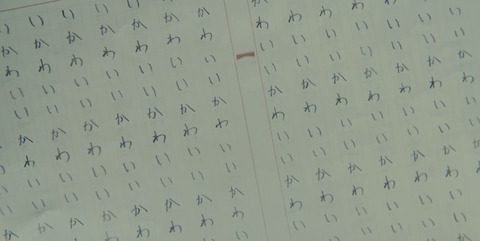 いいかわいいかわいい
いいかわいいかわいい
いいかわいいかわいい
わいいかわいいかわいい
わいいかわいいかわいい
わいいかわいいかわい
わいいかわいいかわい
かわいいかわいいかわい
かわいいかわいいかわい
かわいいかわいいかわ
いかわいいかわいいかわ
いかわいいかわいいかわ
いかわいいかわいいかわ
いかわいいかわいいか
いかわいいかわいいか